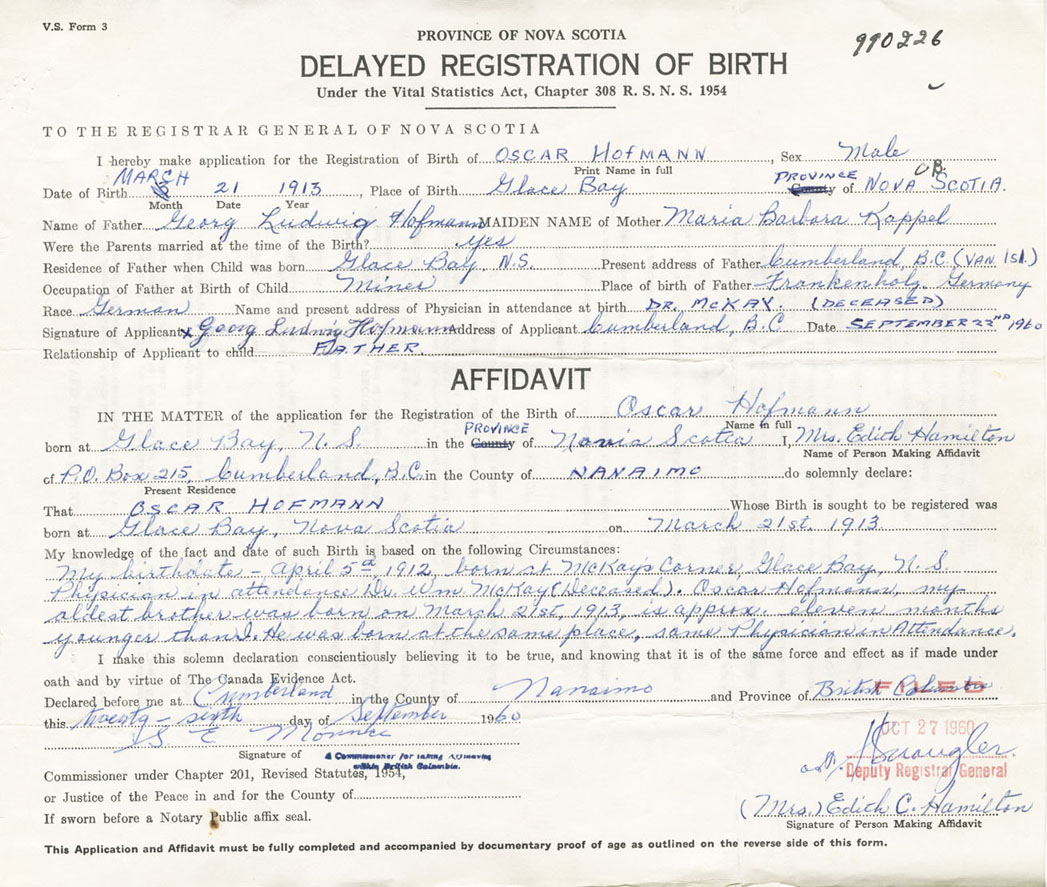 V.S. Form 3
990226
PROVINCE OF NOVA SCOTIA
DELAYED REGISTRATION OF BIRTH
Under the Vital Statistics Act, Chapter 308 R. S. N. S. 1954
TO THE REGISTRAR GENERAL OF NOVA SCOTIA
I hereby make application for the Registration of Birth of OSCAR HOFMANN, Sex Male
Print Name in full
MARCH PROVINCE
Date of Birth 21 1913, Place of Birth Glace Bay County of NOVA SCOTIA.
Month Date Year
Name of Father Georg Ludwig Hofmann MAIDEN NAME of Mother Maria Barbara Kappel
Were the Parents married at the time of the Birth? yes
Residence of Father when Child was born Glace Bay, N.S. Present address of Father Cumberland, B.C. (VAN Isl.)
Occupation of Father at Birth of Child Miner Place of birth of Father Frankenholz, Germany
Race German Name and present address of Physician in attendance at birth DR. McKAY. (DECEASED)
Signature of Applicant x Georg Ludwig Hofmann Address of Applicant Cumberland, B.C. Date SEPTEMBER 22ND 1960
Relationship of Applicant to child FATHER
AFFIDAVIT
IN THE MATTER of the application for the Registration of the Birth of Oscar Hofmann
Name in full
PROVINCE
born at Glace Bay, N.S. in the County of Nova Scotia I, Mrs. Edith Hamilton
Name of Person Making Affidavit
of P.O. Box 215, Cumberland, B.C. in the County of NANAIMO do solemnly declare:
Present Residence
That OSCAR HOFMANN Whose Birth is sought to be registered was
born at Glace Bay, Nova Scotia on March 21st. 1913
My knowledge of the fact and date of such Birth is based on the following Circumstances:
My birthdate - April 5th 1912, born at McKay's Corner, Glace Bay, N.S.
Physician in attendance Dr. Wm McKay (Deceased). Oscar Hofmann, my
oldest brother was born on March 21st, 1913, is approx. eleven months
younger than I. He was born at the same place, same Physician in Attendance.
I make this solemn declaration conscientiously believing it to be true, and knowing that it is of the same force and effect as if made under
oath and by virtue of The Canada Evidence Act.
Declared before me at Cumberland in the County of Nanaimo and Province of British Columbia
FILED
this twenty-sixth day of September 1960
OCT 27 1960
Signature of A Commissioner for taking Affidavits
within British Columbia.
Commissioner under Chapter 201, Revised Statutes, 1954,
Deputy Registrar General
or Justice of the Peace in and for the County of
(Mrs.) Edith C. Hamilton
If sworn before a Notary Public affix seal.
Signature of Person Making Affidavit
This Application and Affidavit must be fully completed and accompanied by documentary proof of age as outlined on the reverse side of this form.